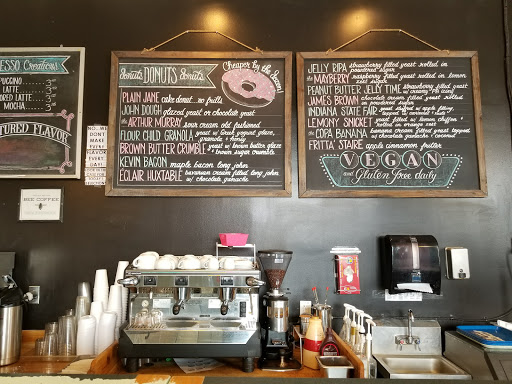 ESSO Creations
PUCCINO
LATTE
ORED LATTE
MOCHA
TURED FLAVOR
NO, WE
DON'T
MAKE
EVERY
FLAVOR
EVERY
DAY!
BEE COFFEE
Donuts DONUTS Donuts
Cheaper by the dozen!
PLAIN JANE cake donut.. no frills
JOHN DOUGH glazed yeast or chocolate yeast
the ARTHUR sour cream old fashioned
FLOUR CHILD GRANOLA yeast w/ Greek yogurt glaze,
granola + honey
BROWN BUTTER CRUMBLE yeast w/ brown butter glaze
+ brown sugar crumble
KEVIN BACON maple bacon long john
ECLAIR HUXTABLE bavarian cream filled long john
w/ chocolate ganache
JELLY RIPA strawberry filled yeast rolled in
powdered sugar
the MAYBERRY raspberry filled yeast rolled in lemon
zest sugar
PEANUT BUTTER JELLY TIME strawberry filled yeast
JAMES BROWN chocolate cream filled yeast rolled
in powdered sugar
INDIANA STATE FAIR yeast
LEMONY SNICKET yeast filled w/ lemon
the COPA BANANA banana cream filled yeast topped
w/ chocolate ganache
FRITTA' STAIRE apple cinnamon fritter
VEGAN
and Gluten free daily